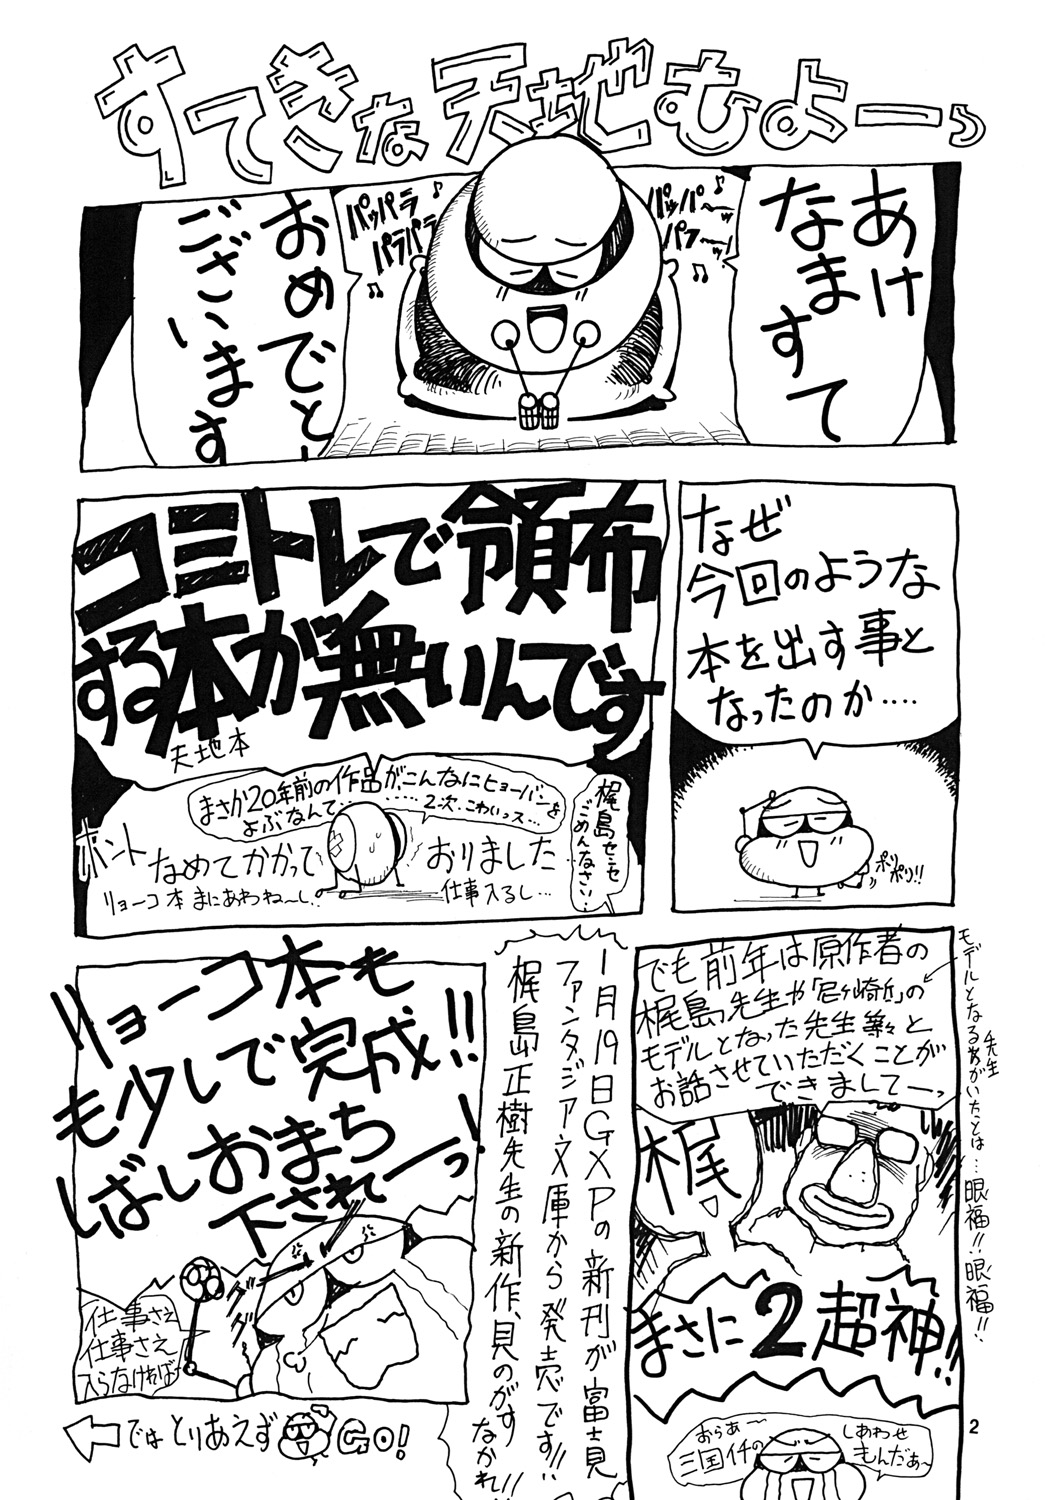 すてきな天地むよーっ
あけ
なますて
パッパ〜w
パフ〜w!
パッパラ
パラパラ
おめでとー
ございます
なぜ
今回のような
本を出す事と
なったのか‥‥
ポリ
ポリ!!
コミトレで領布
する本が無いんです
天地本
まさか20年前の作品がこんなにヒョーバンを
よぶなんて‥‥‥‥2次.こわいっス…
梶島センセ
ごめんなさい‥
ホント
なめてかかって
おりました
リョーコ本まにあわね〜し‥
仕事入るし…
でも前年は原作者の
梶島先生や「尼ヶ崎近」の
モデルとなった先生等々と
お話させていただくことが
できましてーっ
先生
モデルとなるあがいたことは…眼福!!眼福!!‥
梶
まさに2超神!!
おらあ〜
三国イチの
しあわせ
もんだぁ〜
1月19日GXPの新刊が富士見
ファンタジア文庫から発売です!!
梶島正樹先生の新作、見のがす
なかれ!!
リョーコ本も
も少しで完成!!
しばしおまち
下されーっ!
仕事さえ
仕事さえ
入らなければ
ではとりあえず
GO!
2